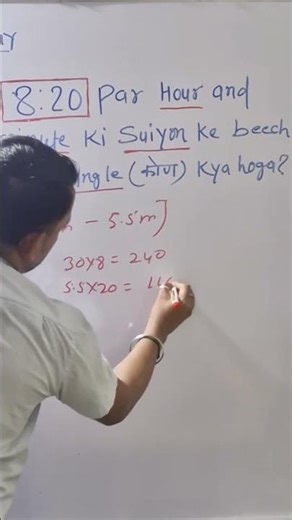 8:20 Par Hour and
Ki Suiyon Ke beech
ngle (कोण) Kya hoga?
- 5.5m]
30×8 = 240
5.5×20 = 11